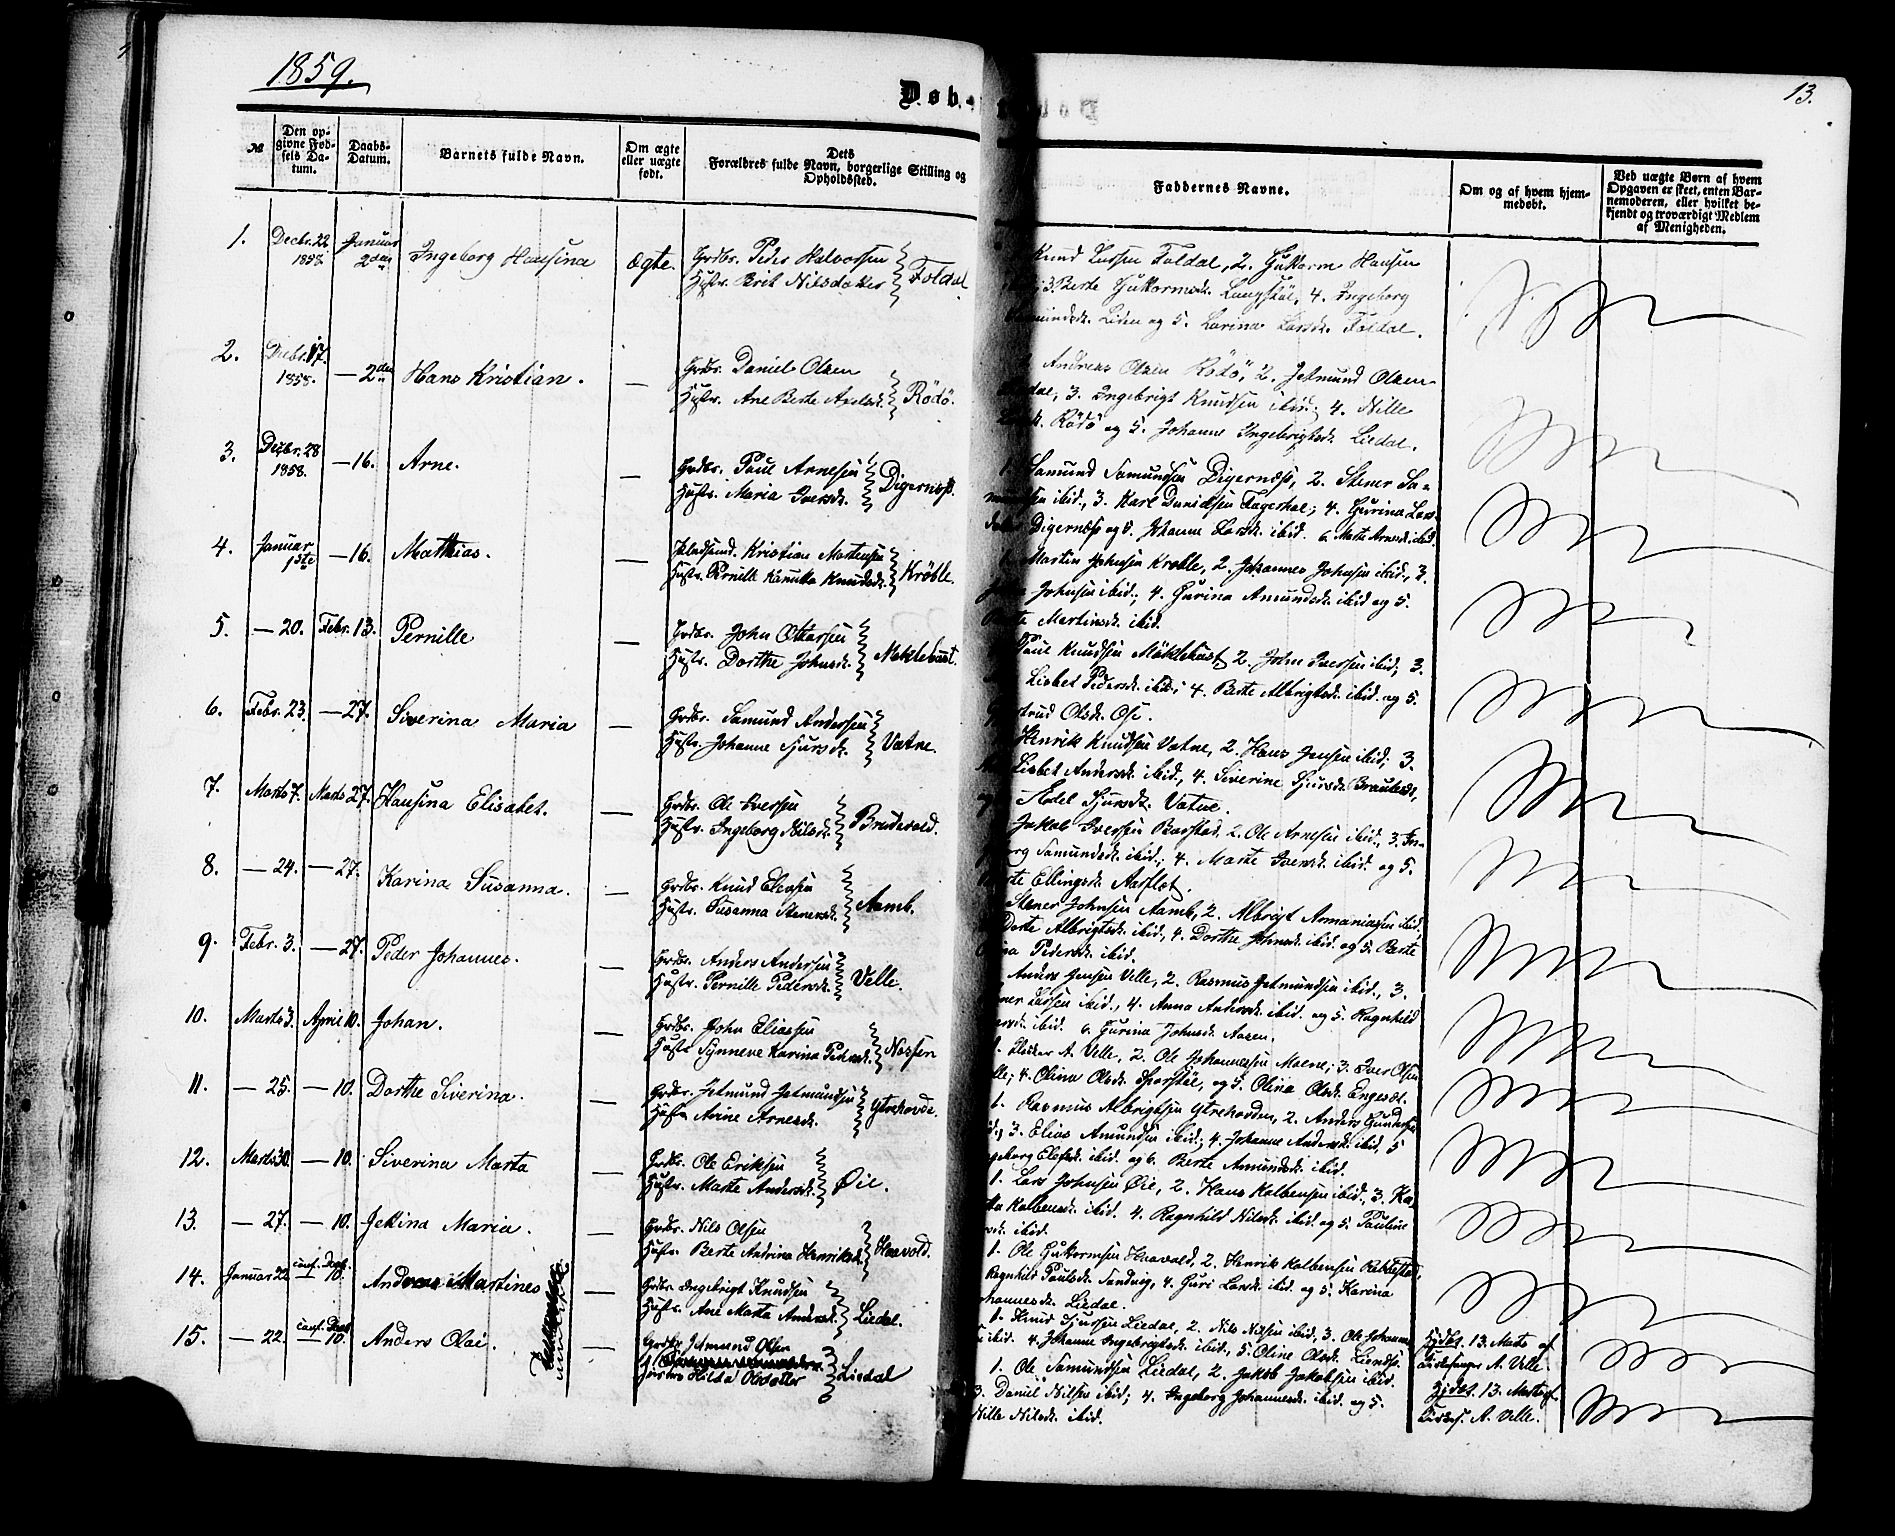 1859.
13.
Døb
№
Den opgivne Fødsels Datum.
Daabs-Datum.
Barnets fulde Navn.
Om ægte eller uægte født.
Dets Forældres fulde Navn, borgerlige Stilling og Opholdssted.
Faddernes Navne.
Om og af hvem hjemmedøbt.
Ved uægte Børn af hvem Opgaven er skeet, enten Barnemoderen, eller hvilket bekjendt og troværdigt Medlem af Menigheden.
1. Decbr. 22 1858 Januar 2den Ingeborg Hansina Ægte.
Grdbr. Peder Halvorsen
Hustr. Brit Nilsdatter Foldal
Knud Larsen Foldal, 2. Guttorm Hansen
3. Berte Guttormsd. Langstøl, 4. Ingeborg
Liden og 5. Larina Larsd. Foldal.
2. Decbr. 17. 1858. — 2den Hans Kristian. —
Grdbr. Daniel Olsen
Hustr. Ane Berte Andersd. Rödö.
Andreas Olsen Rödö, 2. Jetmund Olsen
3. Ingebrigt Knudsen ibid; 4. Nille
Rödö og 5. Johanne Ingebrigtsd. Liedal.
3. Decbr. 28 1858. — 16. Arne. —
Grdbr. Paul Arnesen
Hustr. Maria Iversd. Digernæs.
1. Samund Samundsen Digernæs, 2. Stener Sa-
ibid., 3. Karl Danielsen Fagerhol; 4. Gurina Lars-
Digernæs og 5. Johanne Larsd. ibid. 6. Marte Arnesd. ibid.
4. Januar 1ste — 16. Matthias. —
Kristian Martensen
Hustr. Pernille Knudsd. Krøvle.
1. Martin Johnsen Krøvle, 2. Johannes Johnsen ibid., 3.
Johnsen ibid.; 4. Gurina Amundsd. ibid og 5.
Martinsd. ibid.
5. — 20. Febr. 13. Pernille —
Grdbr. John Ottarsen
Hustr. Dorthe Johnsd. Møklebust.
Paul Knudsen Møklebust, 2. John Iversen ibid; 3.
Lisbet Pedersd. ibid; 4. Berte Albrigtsd. ibid og 5.
Olsd. Ose.
6. Febr. 23. — 27. Siverina Maria —
Grdbr. Samund Andersen
Hustr. Johanne Sjursd. Vatne.
Henrik Knudsen Vatne, 2. Hans Jensen ibid; 3.
Lisbet Andersd. ibid., 4. Siverine Sjursd.
Sjursd. Vatne.
7. Marts 7. Marts 27. Hansina Elisabet. —
Grdbr. Ole Iversen
Hustr. Ingeborg Nilsd. Brudevold.
Jakob Iversen Barstad, 2. Ole Arnesen ibid., 3. In-
Samundsd. ibid.; 4. Marte Iversd. ibid. og 5.
Ellingsd. Aarflot.
8. — 24. — 27. Karina Susanna. —
Grdbr. Knud
Hustr. Susanna Stenersd. Aamb.
Stener Johnsen Aamb, 2. Albrigt ibid,
Dorte Albrigtsd. ibid., 4. Dorthe Johnsd. ibid og 5. Berte
Pedersd. ibid.
9. Febr. 3. — 27. Peder Johannes. —
Grdbr. Anders Andersen
Hustr. Pernille Pedersd. Velle.
Anders Jensen Velle, 2. Rasmus Jetmundsen ibid., 3.
ibid., 4. Anna Andersd. ibid. og 5. Ragnhild
ibid. 6. Gurina Johnsd. Aasen.
10. Marts 3. April 10. Johan. —
Grdbr. John Eliassen
Hustr. Synneve Karina Pedersd. Nossen
1. Klokker A. Velle, 2. Ole Johannessen Moene; 3. Iver Olsen
4. Olina Olsd. Sporstøl, og 5. Olina Olsd. Engeset.
11. — 25. — 10. Dorthe Siverina. —
Grdbr. Jetmund Jetmundsen
Hustr. Anne Arnesd. Ytrehovde.
1. Rasmus Albrigtsen Ytrehovden, 2. Anders
3. Elias Amundsen ibid; 4. Johanne Andersd. ibid, 5
ibid. og 6. Berte Amundsd. ibid.
12. Marts 30. — 10. Siverina Marta —
Grdbr. Ole Eriksen
Hustr. Marte Andersd. Øie.
1. Lars Johnsen Øie, 2. Hans Kolbensen ibid., 3. Ka-
Kolbensd. ibid. 4. Ragnhild Nilsd. ibid og 5. Pauline
ibid.
13. — 27. — 10. Jekina Maria. —
Grdbr. Nils Olsen
Hustr. Berte Andrina Henriksd. Haavold.
1. Ole Guttormsen Haavold, 2. Henrik Kolbensen Rekkestad,
Ragnhild Paulsd. Sandvig, 4. Guri Larsd. ibid. og 5. Karina
Liedal.
14. Januar 22 conf. Daab — 10. Andreas Martines —
Grdbr. Ingebrigt Knudsen
Hustr. Ane Marta Andersd. Liedal.
1. Knud Sjursen Liedal, 2. Nils Nilsen ibid, 3. Ole
ibid. 4. Johanne Ingebrigtsd. ibid, 5. Oline Olsd.
Hjdbt. 13. Marts af
Kirkesanger A. Velle.
15. — 22. conf. Daab — 10. Anders Olai. —
Grdbr. Jetmund Olsen
Hustru Hilda Olsdatter Liedal
1. Ole Samundsen Liedal, 2. Jakob Jakobsen ibid.
3. Daniel Nilsen ibid; 4. Ingeborg Johannesd. ibid. og 5.
Nille Nilsd. ibid.
Hjdbt. 13. Marts af
Kirkes. A. Velle.